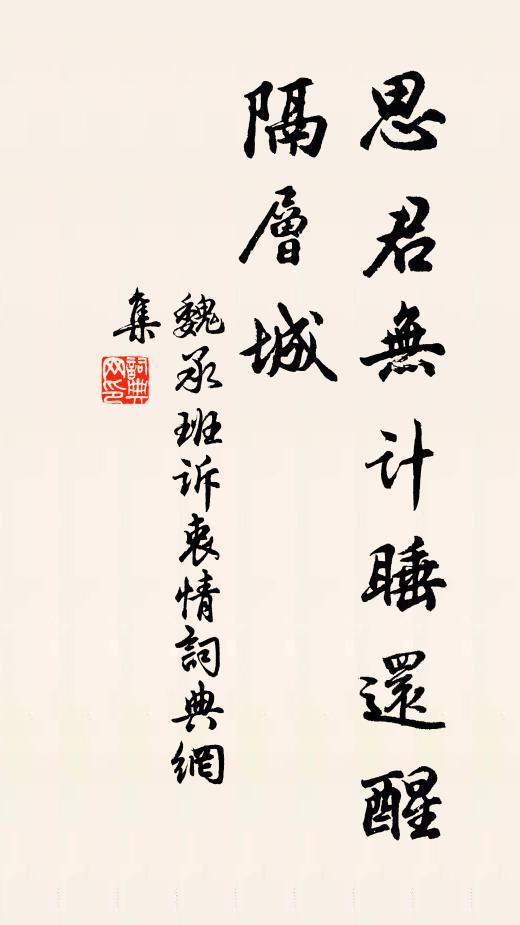 思君無計睡還醒
隔層城
魏承班訴衷情詞典網
集
詞典
网印